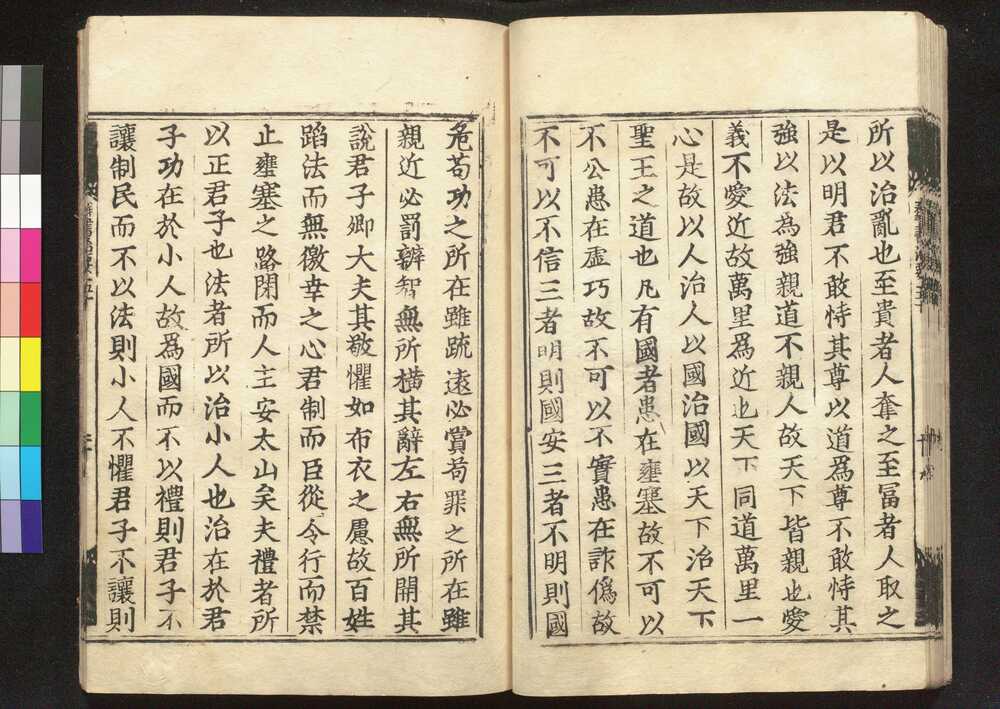 所以治亂也至貴者人奪之至冨者人取之
是以明君不敢恃其尊以道爲尊不敢恃其
強以法為強親道不親人故天下皆親也愛
義不愛近故萬里爲近也天下同道萬里一
心是故以人治人以國治國以天下治天下
聖王之道也凡有國者患在壅塞故不可以
不公患在虚巧故不可以不實患在詐僞故
不可以不信三者明則國安三者不明則國
危苟功之所在雖疏遠必賞苟罪之所在雖
親近必罰辯智無所橫其辭左右無所開其
說君子卿大夫其敬懼如布衣之慮故百姓
蹈法而無徼幸之心君制而臣從令行而禁
止壅塞之路閉而人主安太山矣夫禮者所
以正君子也法者所以治小人也治在於君
子功在於小人故爲國而不以禮則君子不
讓制民而不以法則小人不懼君子不讓則